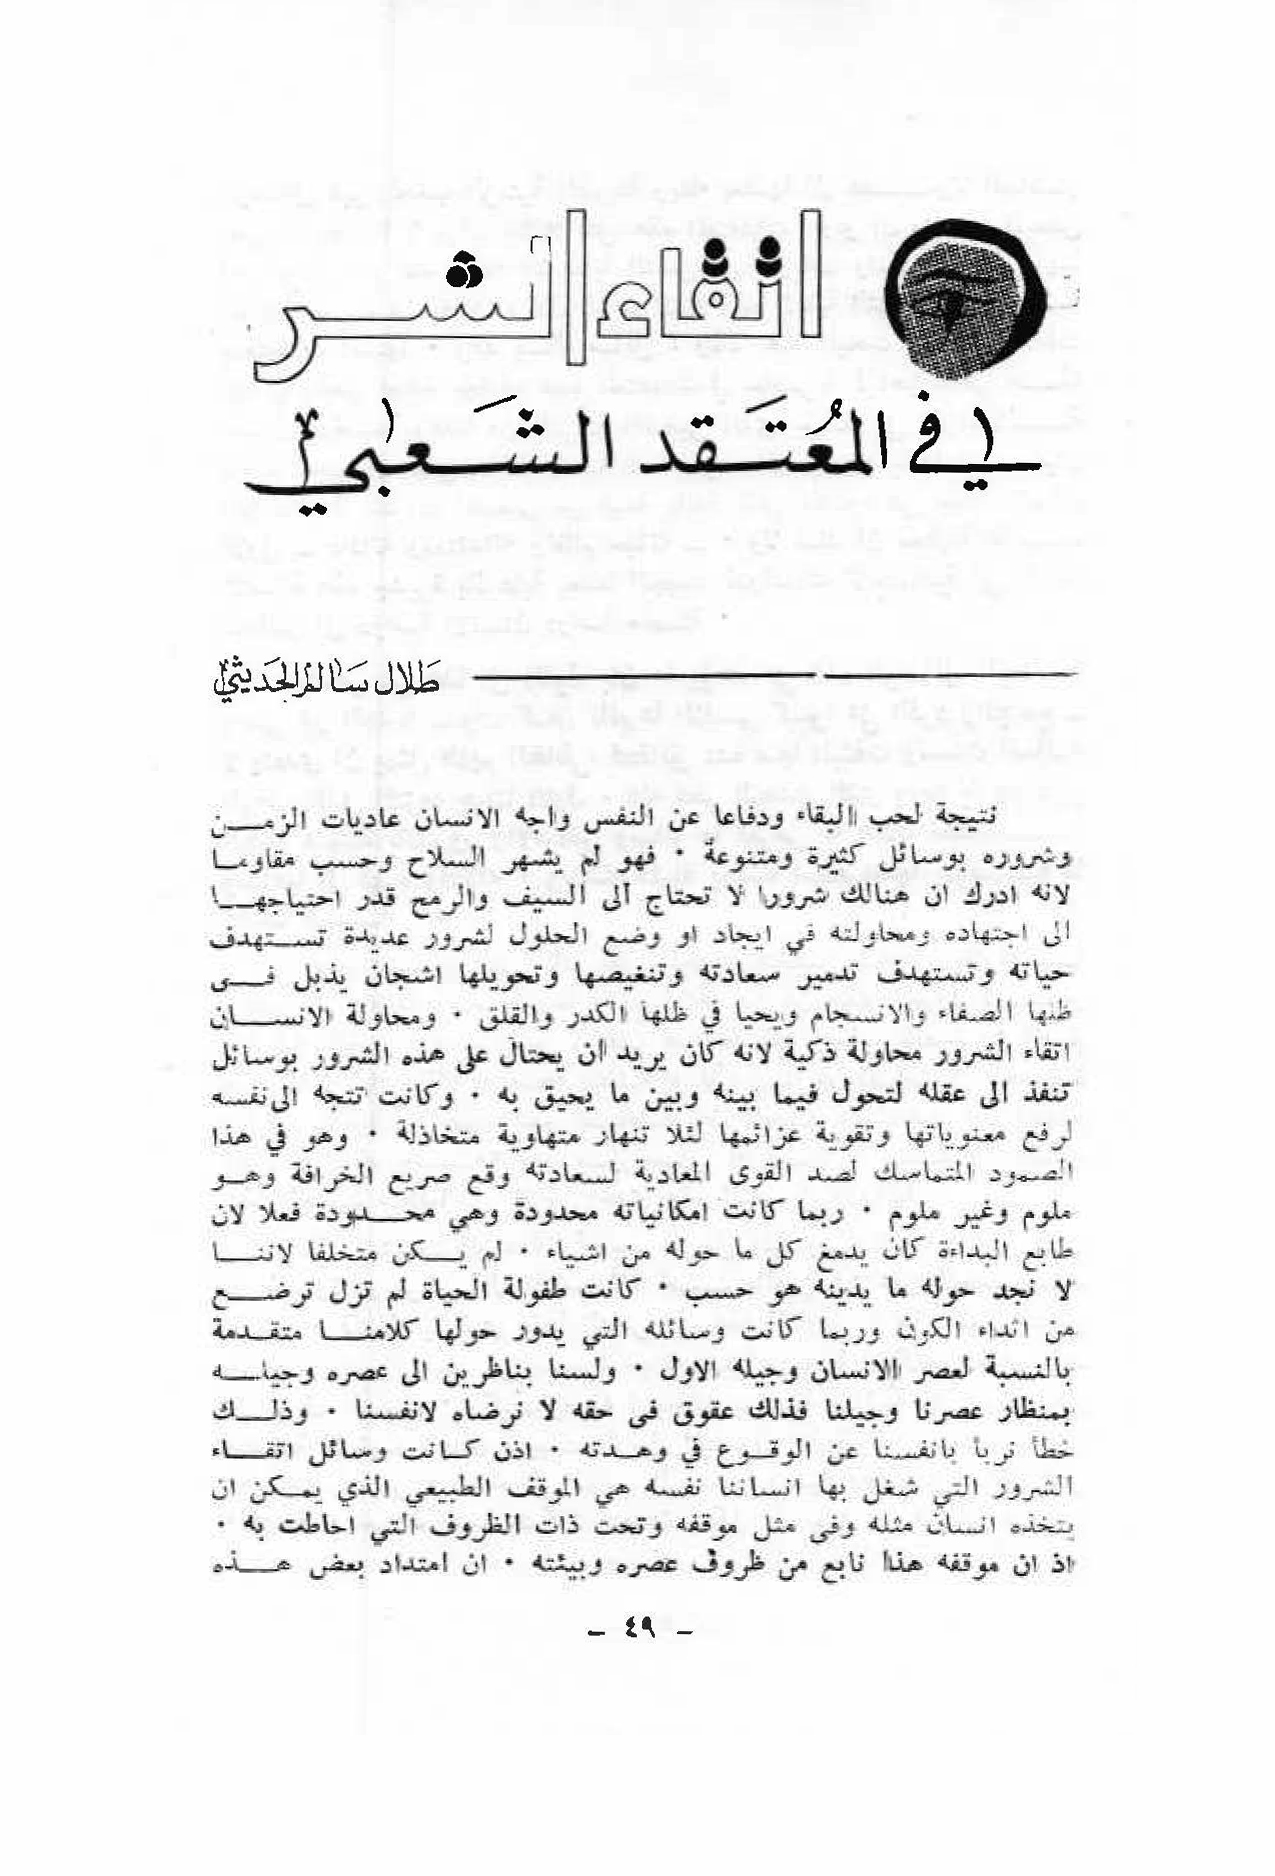 اتقاء الشر
في المُعتَقد الشَعبي
طلال سالم الحديثي
نتيجة لحب البقاء ودفاعا عن النفس واجه الانسان عاديات الزمن
وشروره بوسائل كثيرة ومتنوعة ٠ فهو لم يشهر السلاح وحسب مقاوما
لانه ادرك ان هنالك شرورا لا تحتاج الى السيف والرمح قدر احتياجها
الى اجتهاده ومحاولته في ايجاد او وضع الحلول لشرور عديدة تستهدف
حياته وتستهدف تدمير سعادته وتنغيصها وتحويلها اشجان يذبل فى
ظلها الصفاء والانسجام ويحيا في ظلها الكدر والقلق ٠ ومحاولة الانسان
اتقاء الشرور محاولة ذكية لانه كان يريد ان يحتال على هذه الشرور بوسائل
تنفذ الى عقله لتحول فيما بينه وبين ما يحيق به ٠ وكانت تتجه الى نفسه
لرفع معنوياتها وتقوية عزائمها لئلا تنهار متهاوية متخاذلة ٠ وهو في هذا
الصمود المتماسك لصد القوى المعادية لسعادته وقع صريع الخرافة وهو
ملوم وغير ملوم ٠ ربما كانت امكانياته محدودة وهي محدودة فعلا لان
طابع البداءة كان يدمغ كل ما حوله من اشياء ٠ لم يكن متخلفا لاننا
لا نجد حوله ما يدينه هو حسب ٠ كانت طفولة الحياة لم تزل ترضع
من اثداء الكون وربما كانت وسائله التي يدور حولها كلامنا متقدمة
بالنسبة لعصر الانسان وجيله الاول ٠ ولسنا بناظرين الى عصره وجيله
بمنظار عصرنا وجيلنا فذلك عقوق فى حقه لا نرضاه لانفسنا ٠ وذلك
خطأ نربأ بانفسنا عن الوقوع في وهدته ٠ اذن كانت وسائل اتقاء
الشرور التي شغل بها انساننا نفسه هي الموقف الطبيعي الذي يمكن ان
يتخذه انسان مثله وفى مثل موقفه وتحت ذات الظروف التي احاطت به ٠
اذ ان موقفه هذا نابع من ظروف عصره وبيئته ٠ ان امتداد بعض هذه
- ٤٩ -